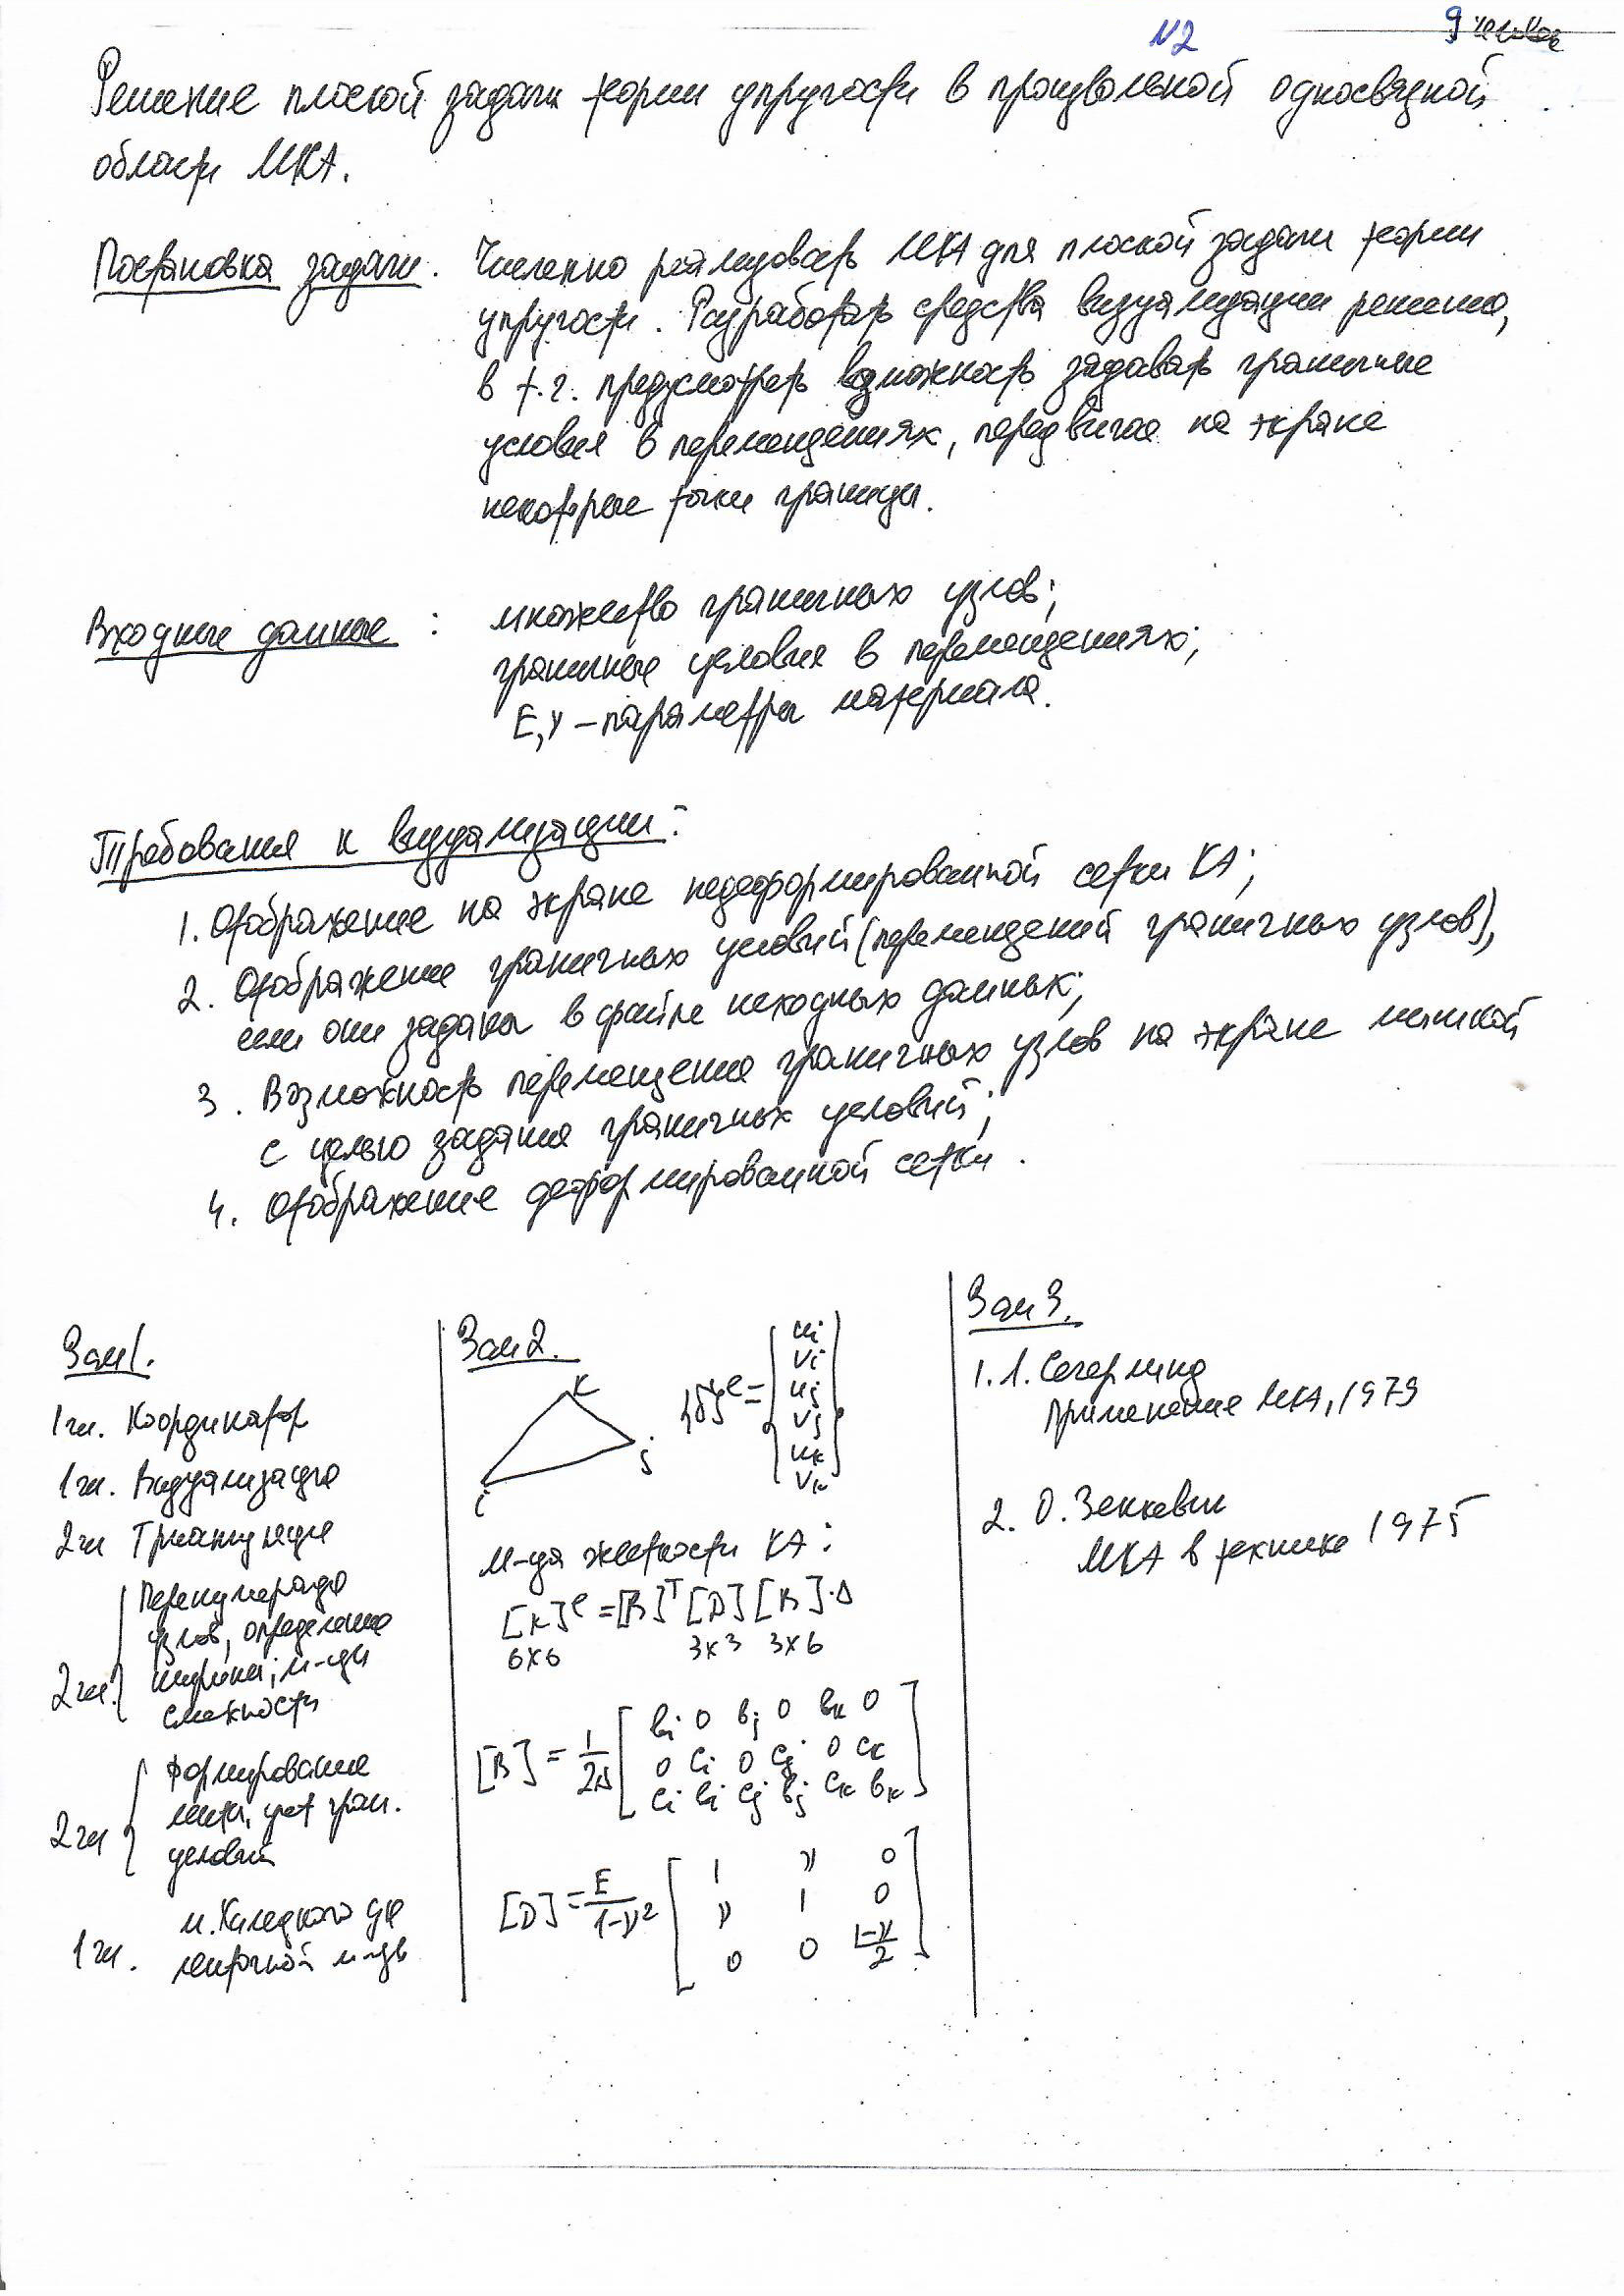 №2
9 человек
Решение плоской задачи теории упругости в произвольной односвязной
области МКА.
Постановка задачи. Численно реализовать МКА для плоской задачи теории
упругости. Разработать средства визуализации решения,
в т.ч. предусмотреть возможность задавать граничные
условия в перемещениях, передвигая на экране
некоторые точки границы.
Входные данные: множество граничных узлов;
граничные условия в перемещениях;
E, ν – параметры материала.
Требования к визуализации:
1. Отображение на экране недеформированной сетки КА;
2. Отображение граничных условий (перемещений граничных узлов),
если они заданы в файле исходных данных;
3. Возможность перемещения граничных узлов на экране мышкой
с целью задания граничных условий;
4. Отображение деформированной сетки.
Зам 1.
1 чел. Координатор
1 чел. Визуализация
2 чел Триангуляция
2 чел. { Перенумерация
узлов, определение
ширины; м-цы
смежности
2 чел { Формирование
ленты, учет гран.
условий
1 чел. м. Халецкого для
ленточной м-цы
Зам 2.
K
i
j
{δ}ᵉ = { ui vi uj vj uk vk }
М-ца жесткости КА:
[K]ᵉ = [B]ᵀ [D] [B]·Δ
6x6 3x3 3x6
[B] = 1/2Δ [ bi 0 bj 0 bk 0
0 ci 0 cj 0 ck
ci bi cj bj ck bk ]
[D] = E/1-ν² [ 1 ν 0
ν 1 0
0 0 1-ν/2 ]
Зам 3.
1. Л. Сегерлинд
Применение МКА, 1979
2. О. Зенкевич
МКА в технике 1975